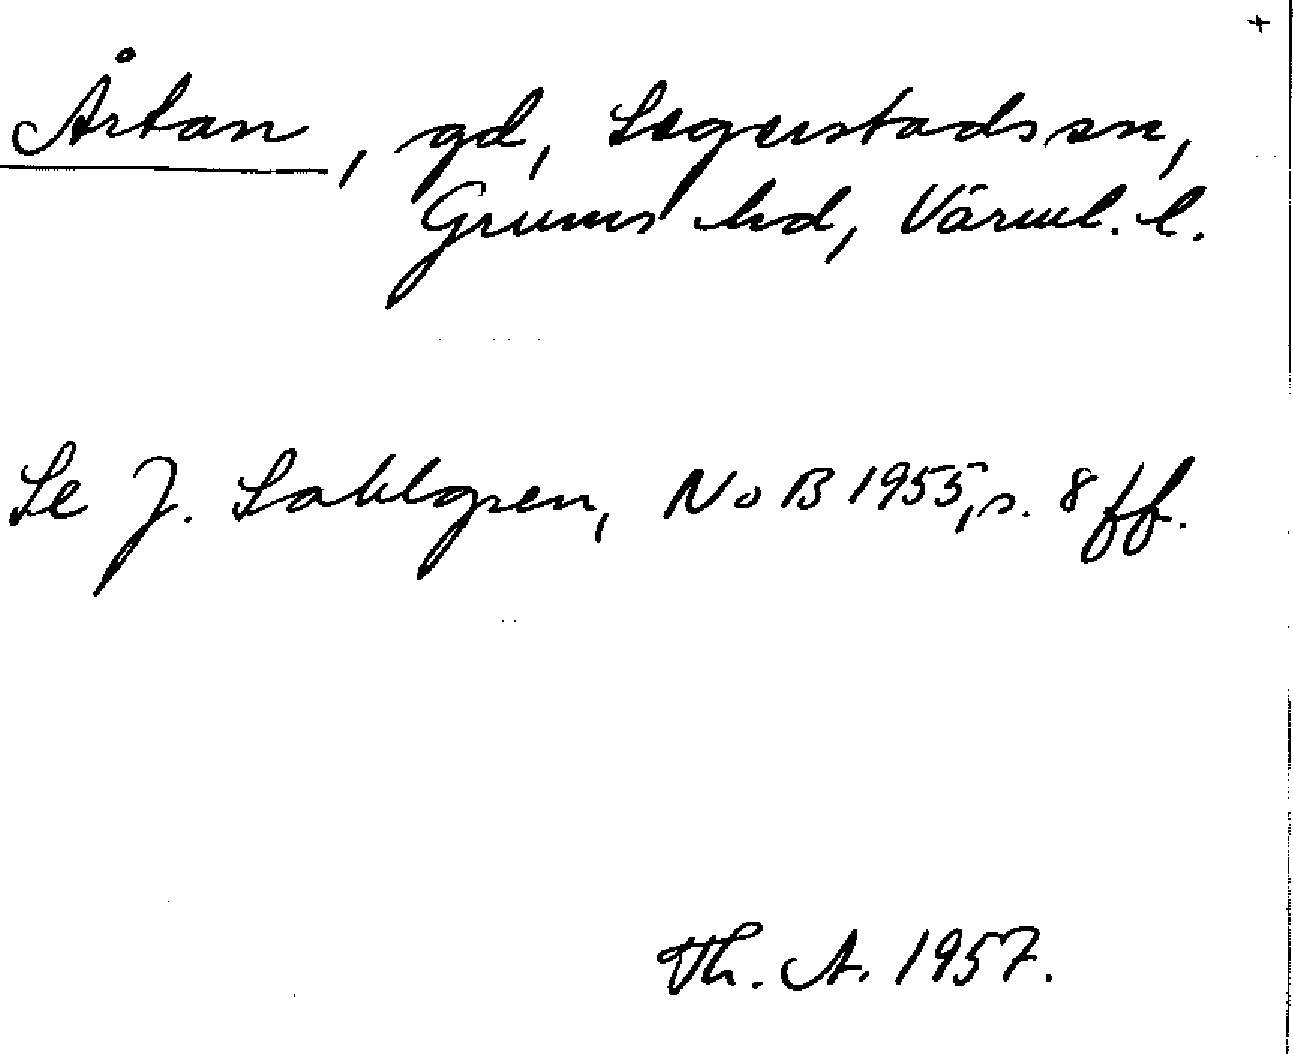 +
Årtan, gd, Segerstads sn,
Grums hd, Värml. l.
Se J. Sahlgren, NoB 1955, s. 8 ff.
Th. A. 1957.